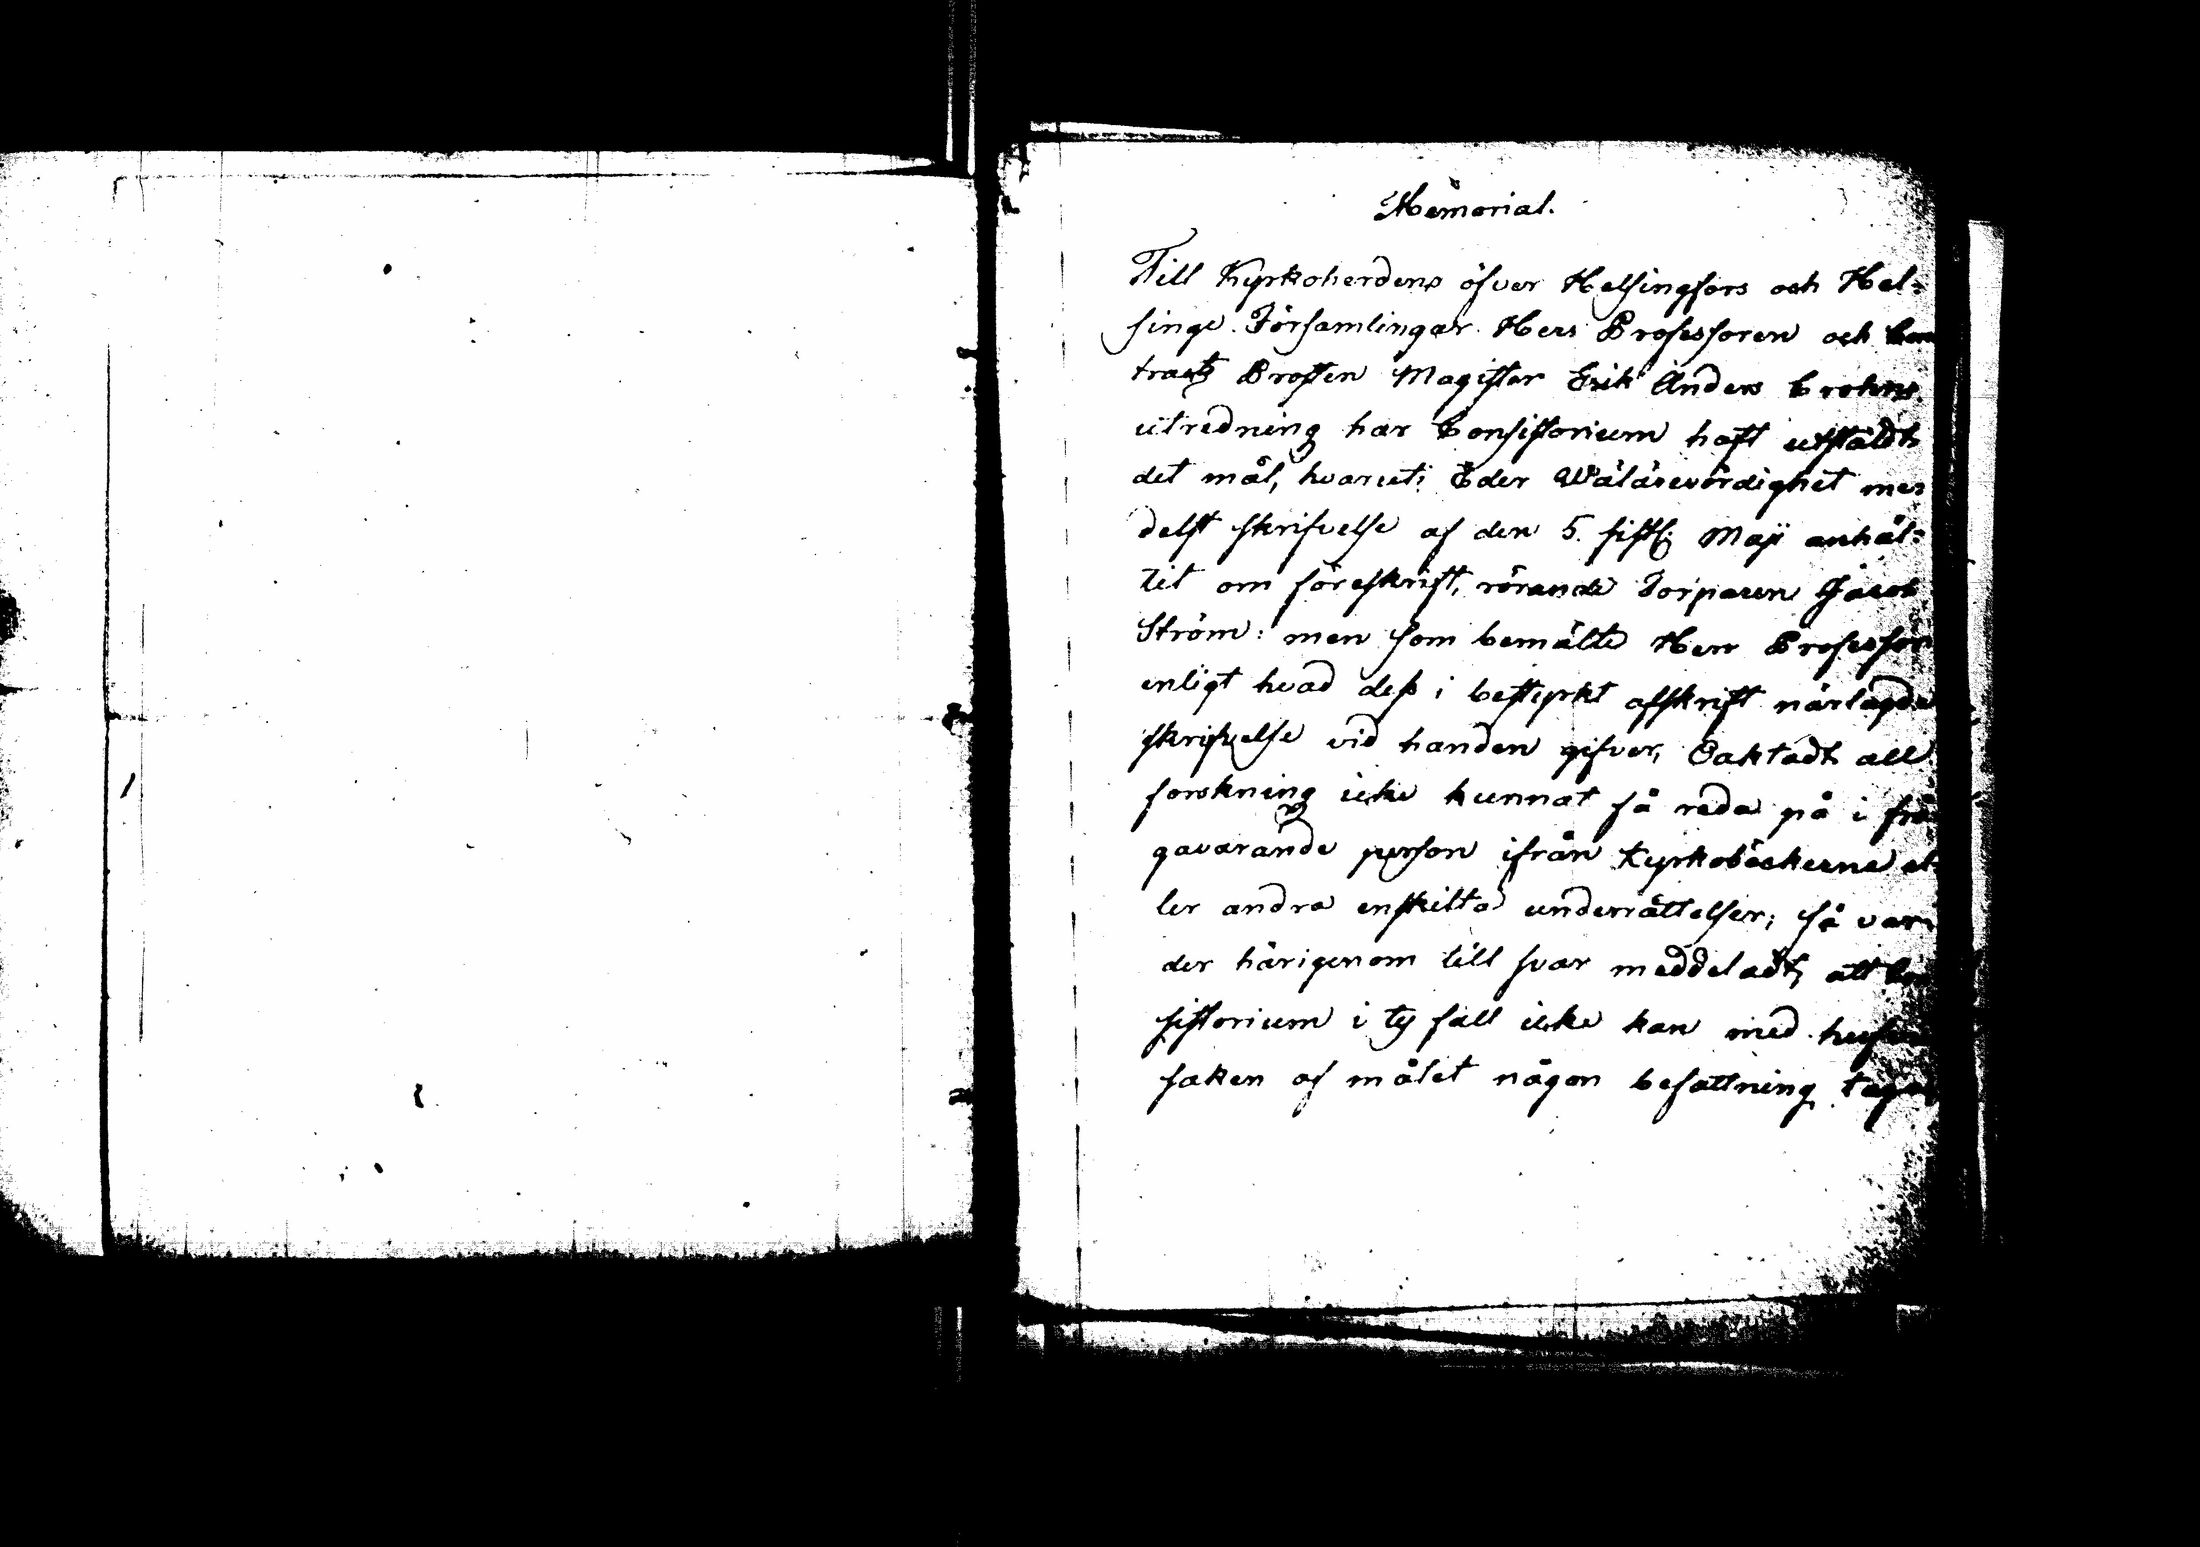 Memorial.
Till Kyrkoherdens öfver Helsingfors och Hel=
singe Församlingar Herr Professoren och Con
tracts Prosten Magister Erik Anders Crohns
utredning har Consistorium haft utstäldt
det mål, hvaruti Eder Wälärevördighet me=
delst skrifvelse af den 5. sistl. Maji anhål=
lit om föreskrift, rörande Torparen Jacob
Ström: men som bemälte Herr Professor
enligt hvad dess i bestyrkt afskrift närlagde
skrifvelse vid handen gifver, Oaktadt all
forskning icke kunnat få reda på i frå
gavarande person ifrån Kyrkoböckerne el
ler andra enskilta underrättelser; så var=
der härigenom till svar meddeladt, att Con
sistorium i ty fall icke kan med hufvud
saken af målet någon befattning taga